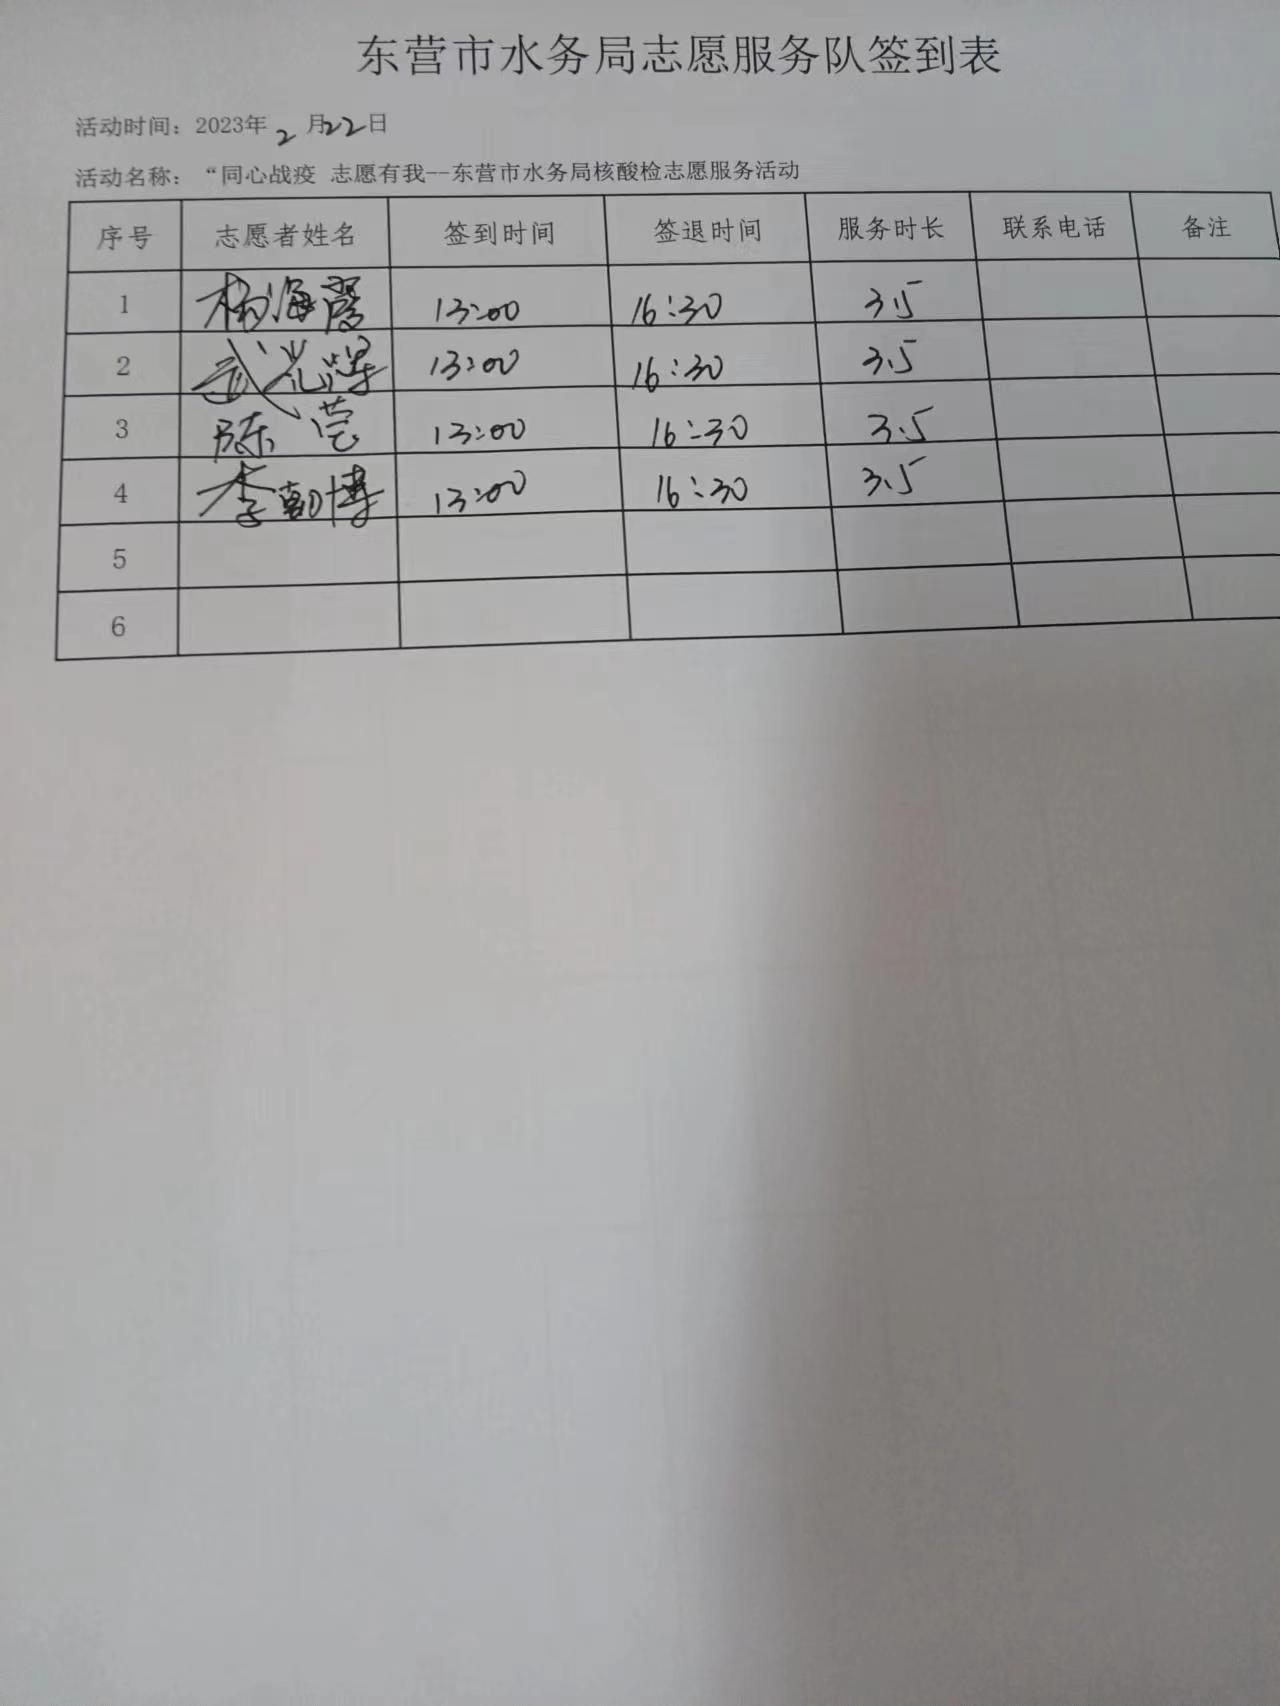 东营市水务局志愿服务队签到表
活动时间：2023年2月22日
活动名称：“同心战疫 志愿有我--东营市水务局核酸检志愿服务活动
序号 志愿者姓名 签到时间 签退时间 服务时长 联系电话 备注
1 杨海霞 13:00 16:30 3.5
2 武 13:00 16:30 3.5
3 陈莹 13:00 16:30 3.5
4 李博 13:00 16:30 3.5
5
6